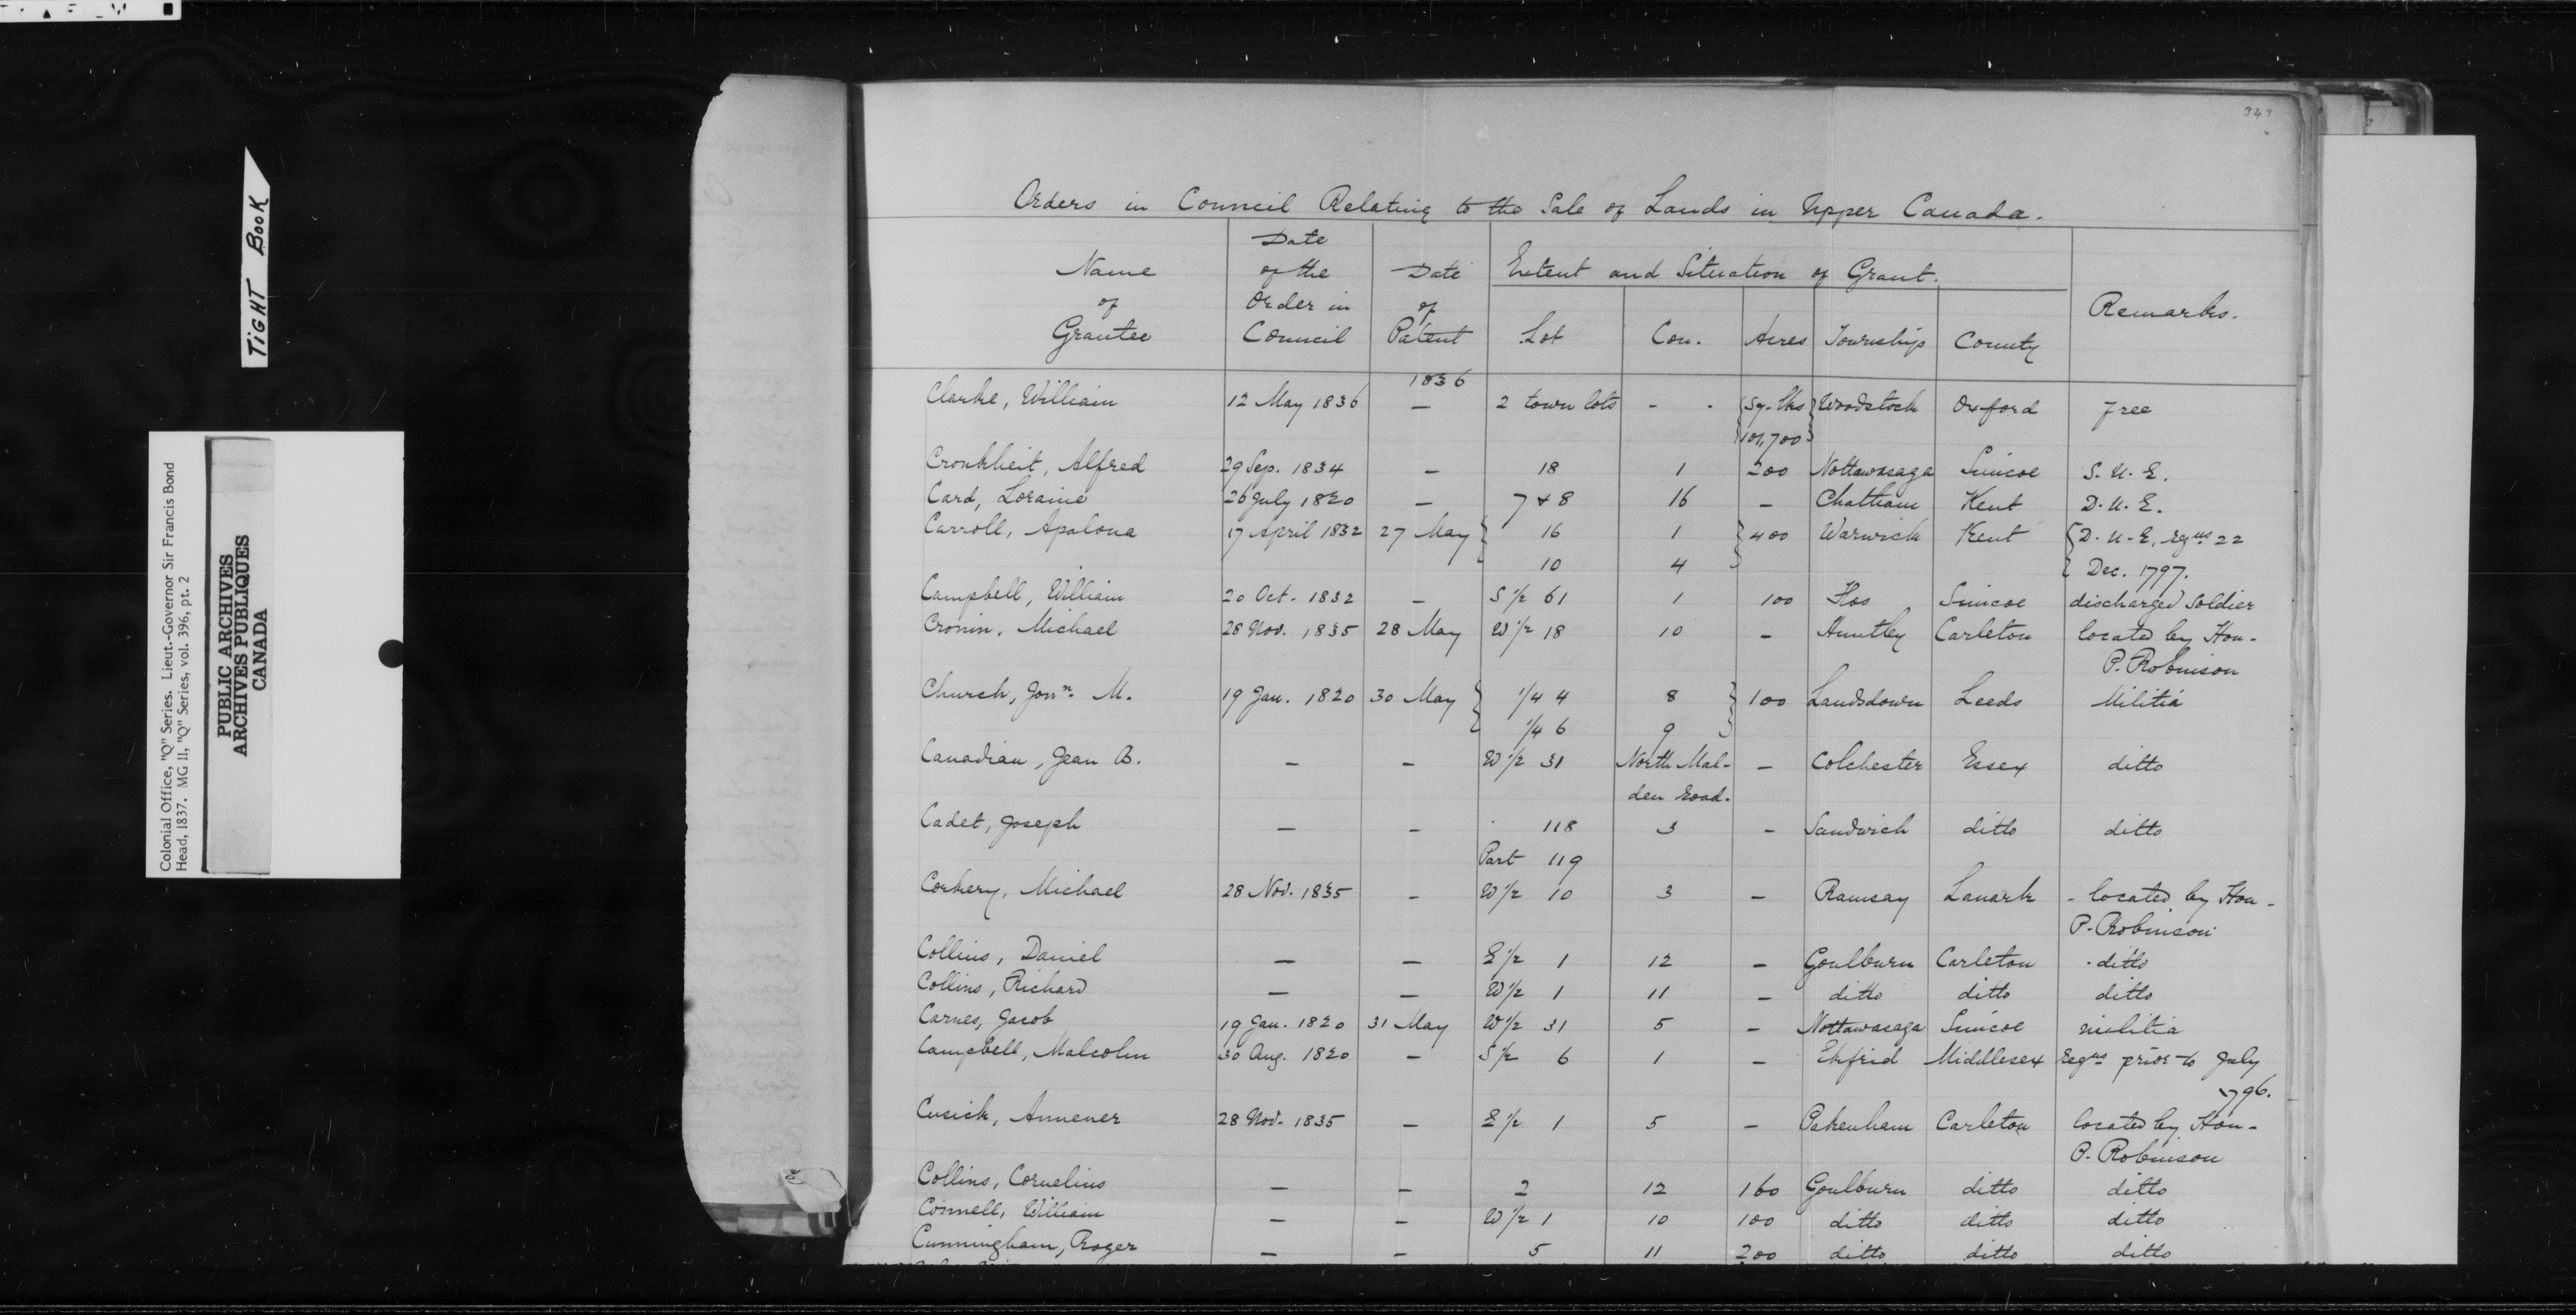 343
Orders in Council Relating to the Sale of Lands in Upper Canada.
Name of Grantee | Date of the Order in Council | Date of Patent | Extent and Situation of Grant. | Remarks.
Lot | Con. | Acres | Township | County
1836
Clarke, William 12 May 1836 — 2 town lots - - {Sq. lks} Woodstock Oxford Free
{101,700}
Cronkheit, Alfred 29 Sep. 1834 — 18 1 200 Nottawasaga Simcoe S. U. E.
Card, Loraine 26 July 1820 — 7 & 8 16 — Chatham Kent D. U. E.
Carroll, Apalona 17 April 1832 27 May { 16 1 } 400 Warwick Kent { D. U. E. regns 22
10 4 { Dec. 1797.
Campbell, William 20 Oct. 1832 — S 1/2 61 1 100 Flos Simcoe discharged Soldier
Cronin, Michael 28 Nov. 1835 28 May W 1/2 18 10 — Huntley Carleton located by Hon.
P. Robinson
Church, Jonn. M. 19 Jan. 1820 30 May { 1/4 4 8 } 100 Landsdown Leeds Militia
1/4 6 9
Canadian, Jean B. — — W 1/2 31 North Mal- — Colchester Essex ditto
den road.
Cadet, Joseph — — 118 3 — Sandwich ditto ditto
Part 119
Corkery, Michael 28 Nov. 1835 — W 1/2 10 3 — Ramsay Lanark - located by Hon -
P. Robinson
Collins, Daniel — — E 1/2 1 12 — Goulburn Carleton ditto
Collins, Richard — — W 1/2 1 11 — ditto ditto ditto
Carnes, Jacob 19 Jan. 1820 31 May W 1/2 31 5 — Nottawasaga Simcoe militia
Campbell, Malcolm 30 Aug. 1820 — S 1/2 6 1 — Ekfrid Middlesex regns prior to July
1796.
Cusick, Ammener 28 Nov. 1835 — E 1/2 1 5 — Pakenham Carleton located by Hon -
P. Robinson
Collins, Cornelius — — 2 12 160 Goulburn ditto ditto
Connell, William — — W 1/2 1 10 100 ditto ditto ditto
Cunningham, Roger — — 5 11 200 ditto ditto ditto
TIGHT BOOK
Colonial Office, "Q" Series. Lieut.-Governor Sir Francis Bond
Head, 1837. MG 11, "Q" Series, vol. 396, pt. 2
PUBLIC ARCHIVES
ARCHIVES PUBLIQUES
CANADA